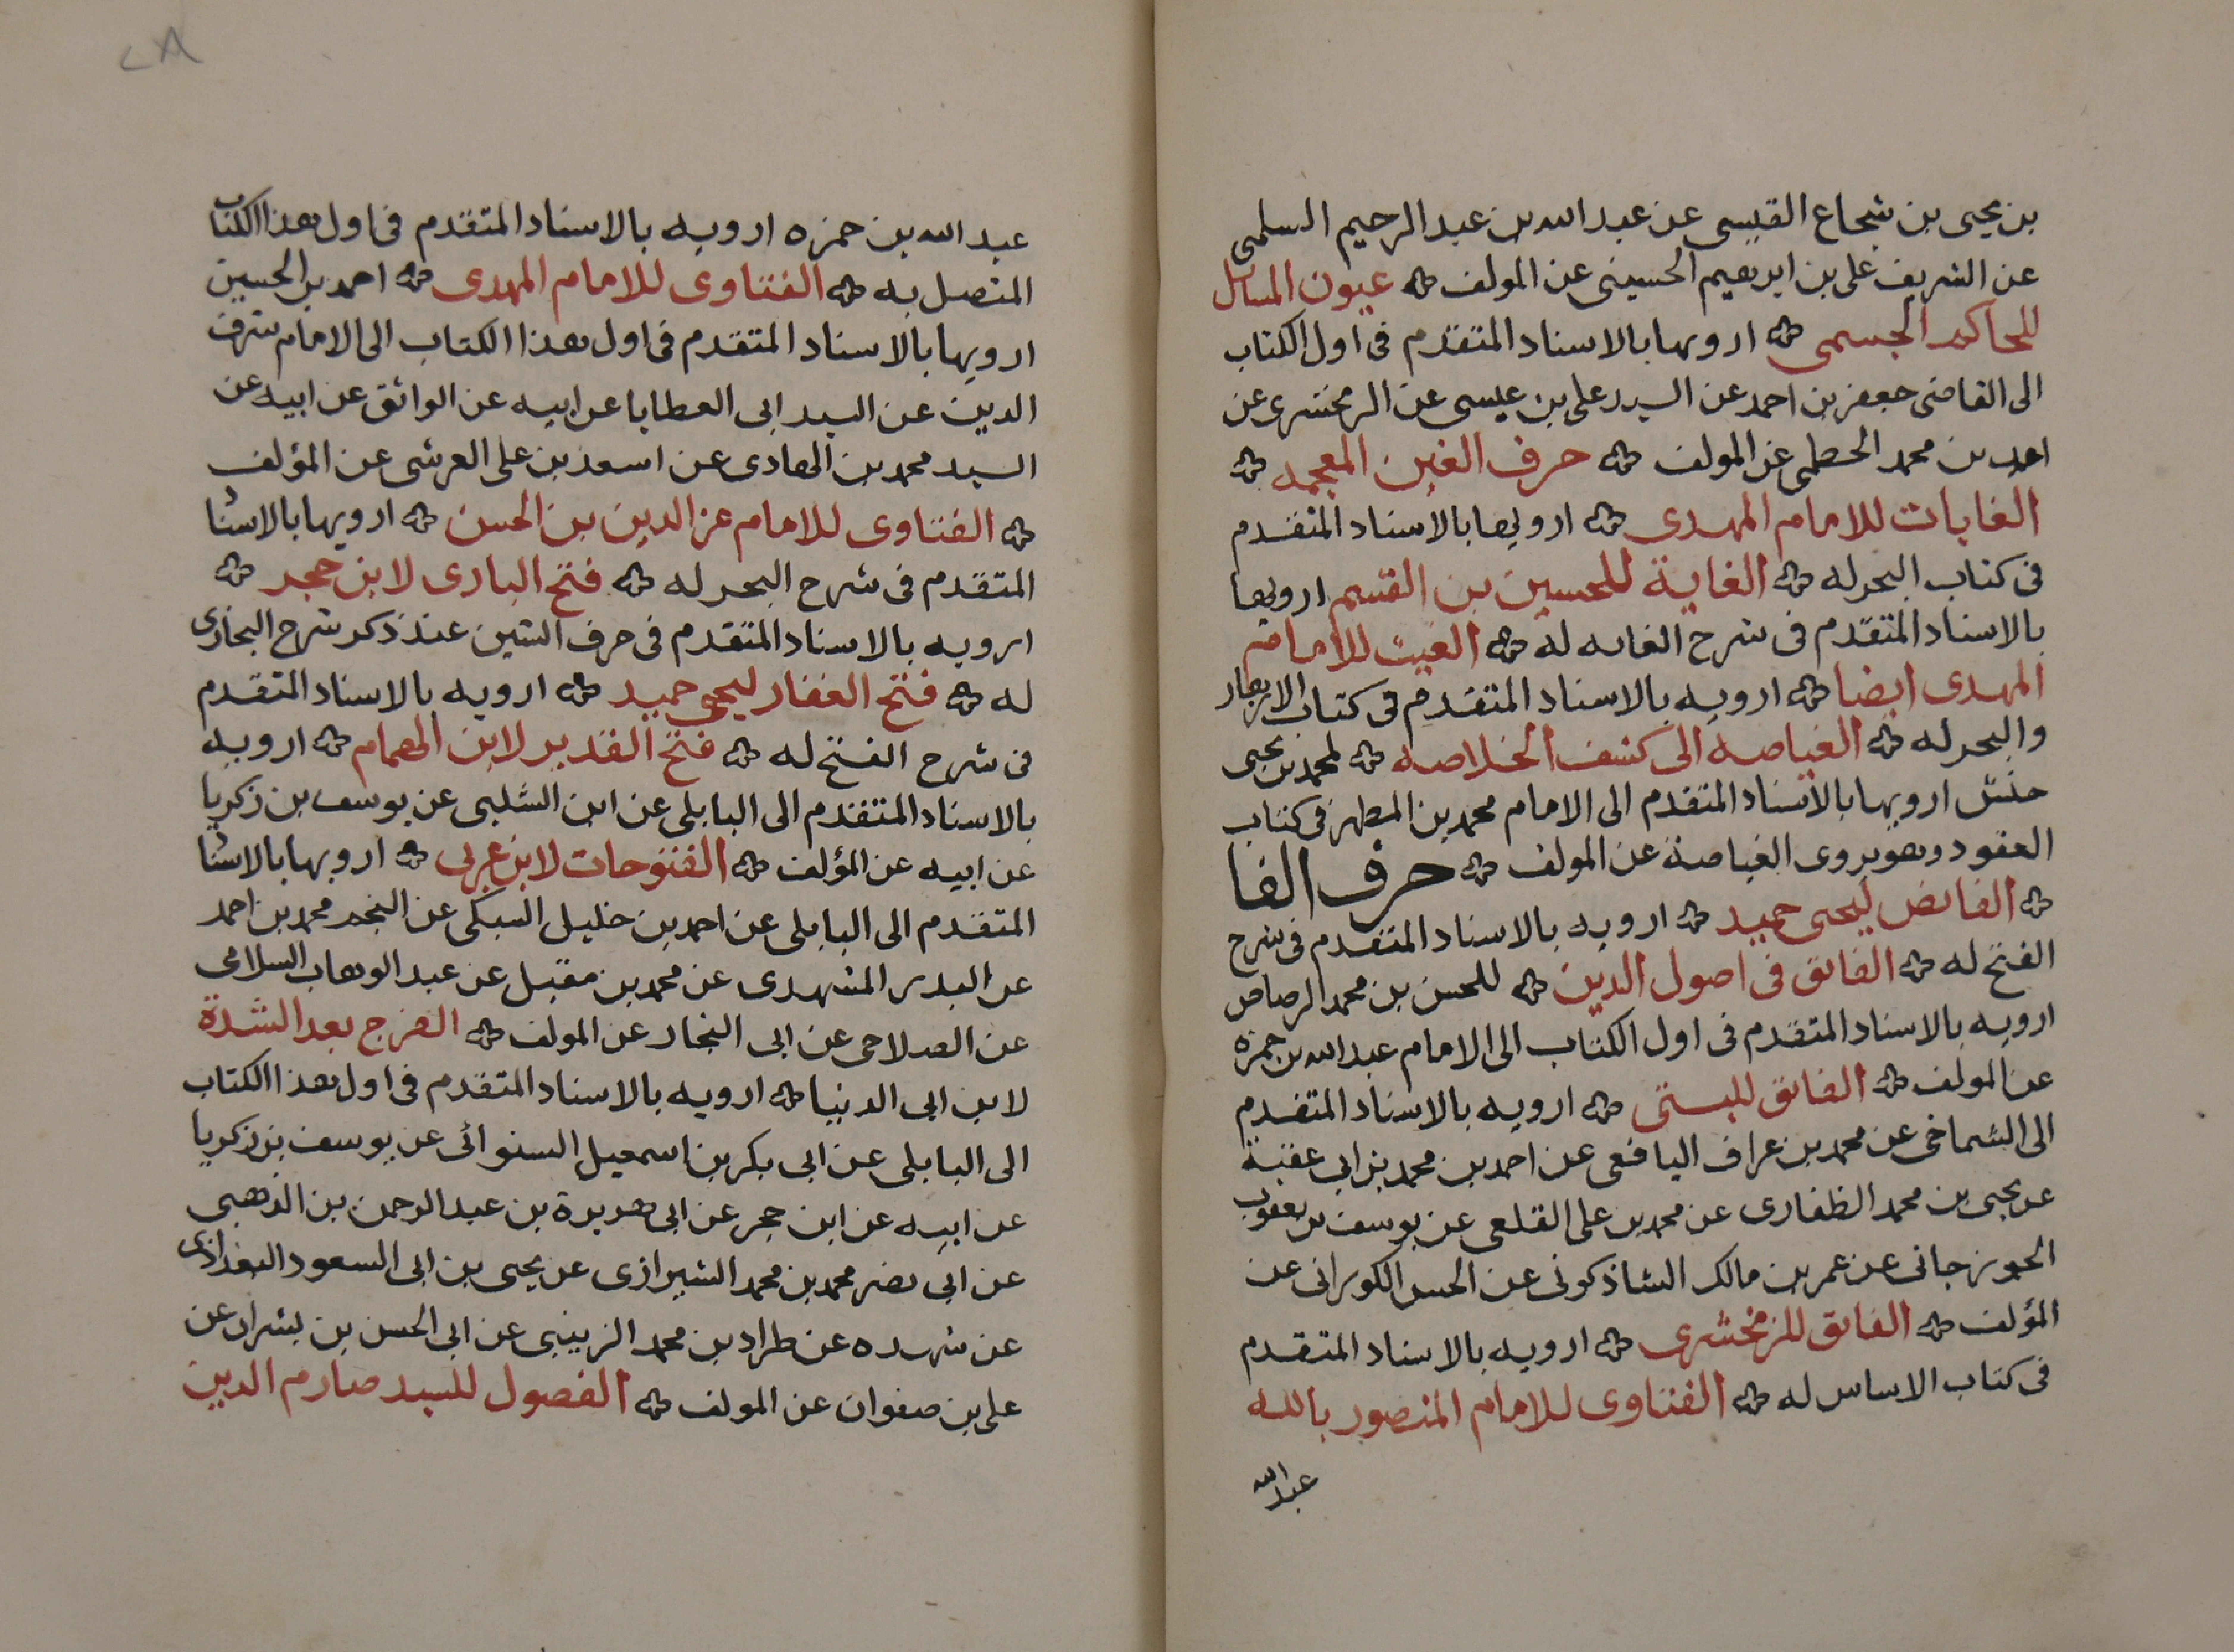 بن يحيى بن شجاع القيسى عن عبد الله بن عبد الرحيم السلمى
عن الشريف على بن ابرهيم الحسينى عن المولف ۞ عيون المسائل
للحاكم الجسمى ۞ ارويها بالاسناد المتقدم فى اول الكتاب
الى القاضى جعفر بن احمد عن السيد على بن عيسى عن الزمخشرى عن
احمد بن محمد عن المولف ۞ حرف الغين المعجمه ۞
الغايات للامام المهدى ۞ ارويها بالاسناد المتقدم
فى كتاب البحر له ۞ الغاية للحسين بن القسم ارويها
بالاسناد المتقدم فى شرح الغايه له ۞ الغيث للامام
المهدى ايضا ۞ ارويه بالاسناد المتقدم فى كتاب الازهار
والبحر له ۞ الغياصه الى كشف الخلاصه ۞ لمحمد بن يحيى
حنش ارويها بالاسناد المتقدم الى الامام محمد بن المطهر فى كتاب
العقود وهو يروى الغياصة عن المولف ۞ حرف الفا
۞ الفائض ليحيى حميد ۞ ارويه بالاسناد المتقدم فى شرح
الفتح له ۞ الفائق فى اصول الدين ۞ للحسن بن محمد الرصاص
ارويه بالاسناد المتقدم فى اول الكتاب الى الامام عبد الله بن حمزه
عن المولف ۞ الفائق للبستى ۞ ارويه بالاسناد المتقدم
الى الشماخى عن محمد بن عراف اليافعى عن احمد بن محمد بن ابى عقبة
عن يحيى بن محمد الظفارى عن محمد بن على القلعى عن يوسف بن يعقوب
الجوزجانى عن عمر بن مالك الشاذكونى عن الحسن الكورانى عن
المؤلف ۞ الفائق للزمخشرى ۞ ارويه بالاسناد المتقدم
فى كتاب الاساس له ۞ الفتاوى للامام المنصور بالله
عبد الله
٢٨
عبد الله بن حمزه ارويه بالاسناد المتقدم فى اول هذا الكتاب
المتصل به ۞ الفتاوى للامام المهدى ۞ احمد بن الحسين
ارويها بالاسناد المتقدم فى اول هذا الكتاب الى الامام شرف
الدين عن السيد ابى العطايا عن ابيه عن الواثق عن ابيه عن
السيد محمد بن الهادى عن اسعد بن على العرشى عن المؤلف
۞ الفتاوى للامام عز الدين بن الحسن ۞ ارويها بالاسنا
المتقدم فى شرح البحر له ۞ فتح البارى لابن حجر ۞
ارويه بالاسناد المتقدم فى حرف الشين عند ذكر شرح البخارى
له ۞ فتح الغفار ليحيى حميد ۞ ارويه بالاسناد المتقدم
فى شرح الفتح له ۞ فتح القدير لابن الهمام ۞ ارويه
بالاسناد المتقدم الى البابلى عن ابن الشلبى عن يوسف بن زكريا
عن ابيه عن المؤلف ۞ الفتوحات لابن عربى ۞ ارويها بالاسنا
المتقدم الى البابلى عن احمد بن خليل السبكى عن النجم محمد بن احمد
عن البدر المشهدى عن محمد بن مقبل عن عبد الوهاب السلامى
عن الصلاحى عن ابى النجار عن المولف ۞ الفرج بعد الشدة
لابن ابى الدنيا ۞ ارويه بالاسناد المتقدم فى اول هذا الكتاب
الى البابلى عن ابى بكر بن اسمعيل السنوائى عن يوسف بن زكريا
عن ابيه عن ابن حجر عن ابى هريرة بن عبد الرحمن بن الذهبى
عن ابى نصر محمد بن محمد الشيرازى عن يحيى بن ابى السعود البغدادى
عن شهده عن طراد بن محمد الزينبى عن ابى الحسن بن بشران عن
على بن صفوان عن المولف ۞ الفصول للسيد صارم الدين